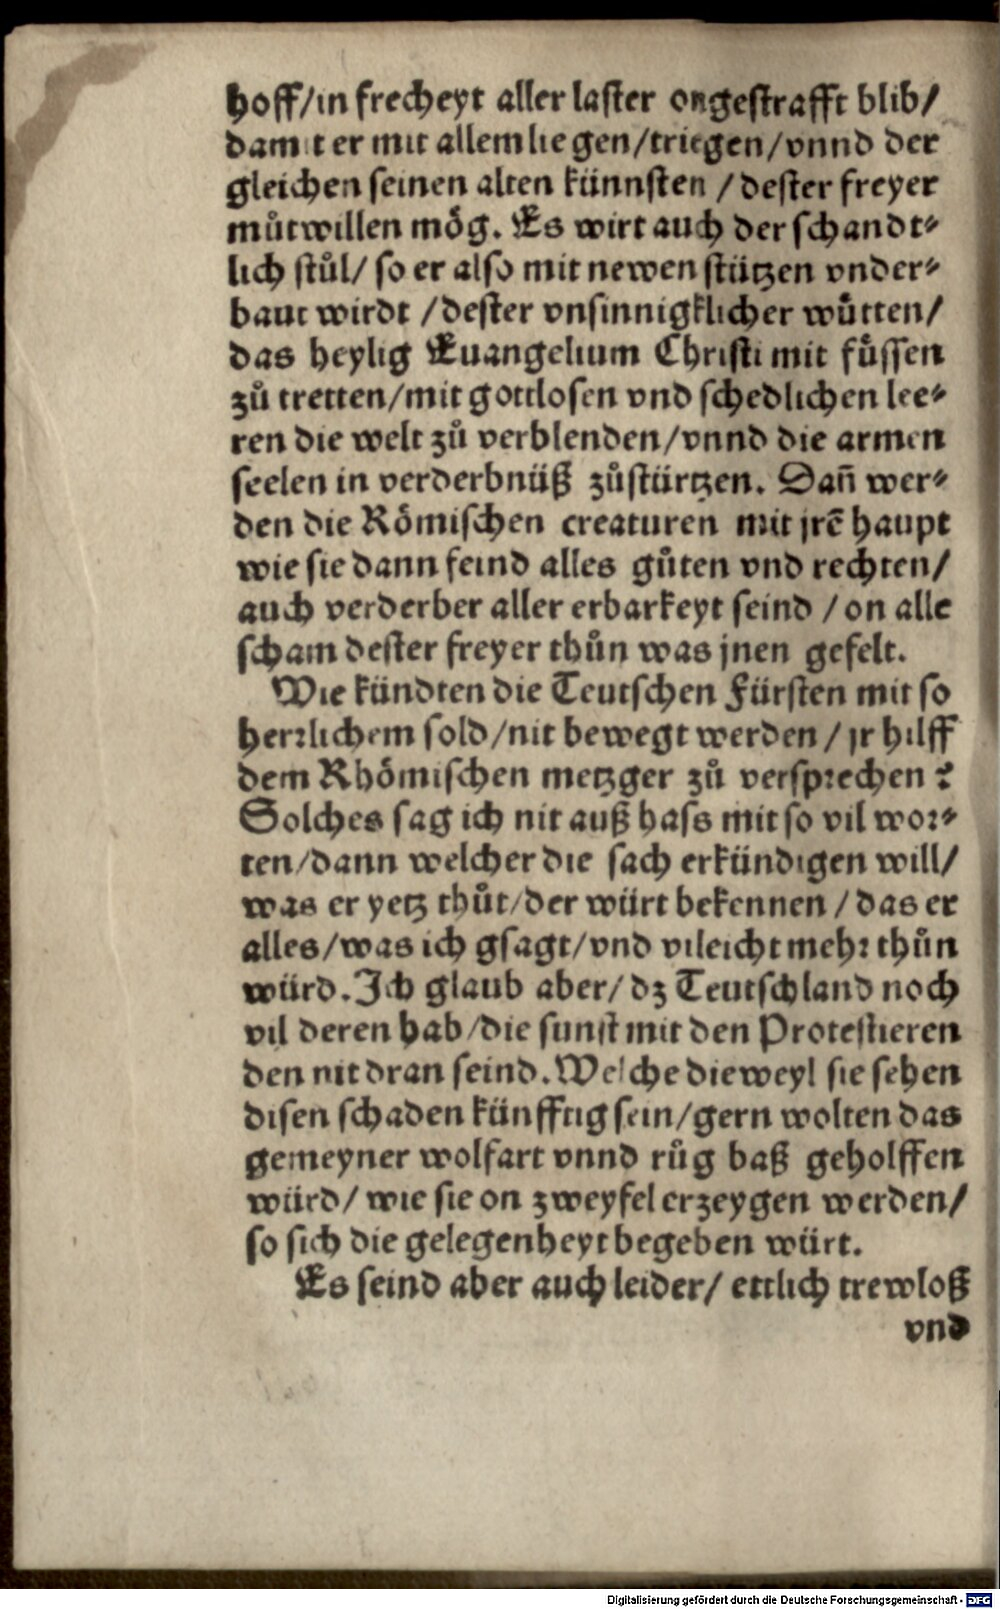 hoff/in frecheyt aller laster ongestrafft blib/
damit er mit allem liegen/triegen/vnnd der
gleichen seinen alten künnsten / dester freyer
můtwillen mög. Es wirt auch der schandt⸗
lich stůl/ so er also mit newen stützen vnder⸗
baut wirdt / dester vnsinnigklicher wůtten/
das heylig Euangelium Christi mit fůssen
zů tretten/mit gottlosen vnd schedlichen lee⸗
ren die welt zů verblenden/vnnd die armen
seelen in verderbnüß zůstürtzen. Dañ wer⸗
den die Römischen creaturen mit jrē haupt
wie sie dann feind alles gůten vnd rechten/
auch verderber aller erbarkeyt seind / on alle
scham dester freyer thůn was jnen gefelt.
Wie kündten die Teutschen Fürsten mit so
herꝛlichem sold/nit bewegt werden / jr hilff
dem Rhömischen metzger zů verspꝛechen?
Solches sag ich nit auß hass mit so vil woꝛ⸗
ten/dann welcher die sach erkündigen will/
was er yetz thůt/der würt bekennen / das er
alles/was ich gsagt/vnd vileicht mehꝛ thůn
würd. Ich glaub aber/ dz Teutschland noch
vil deren hab/die sunst mit den Protestieren
den nit dran seind. Welche dieweyl sie sehen
disen schaden künfftig sein/gern wolten das
gemeyner wolfart vnnd růg baß geholffen
würd/ wie sie on zweyfel erzeygen werden/
so sich die gelegenheyt begeben würt.
Es seind aber auch leider/ ettlich trewloß
vnd
Digitalisierung gefördert durch die Deutsche Forschungsgemeinschaft - DFG